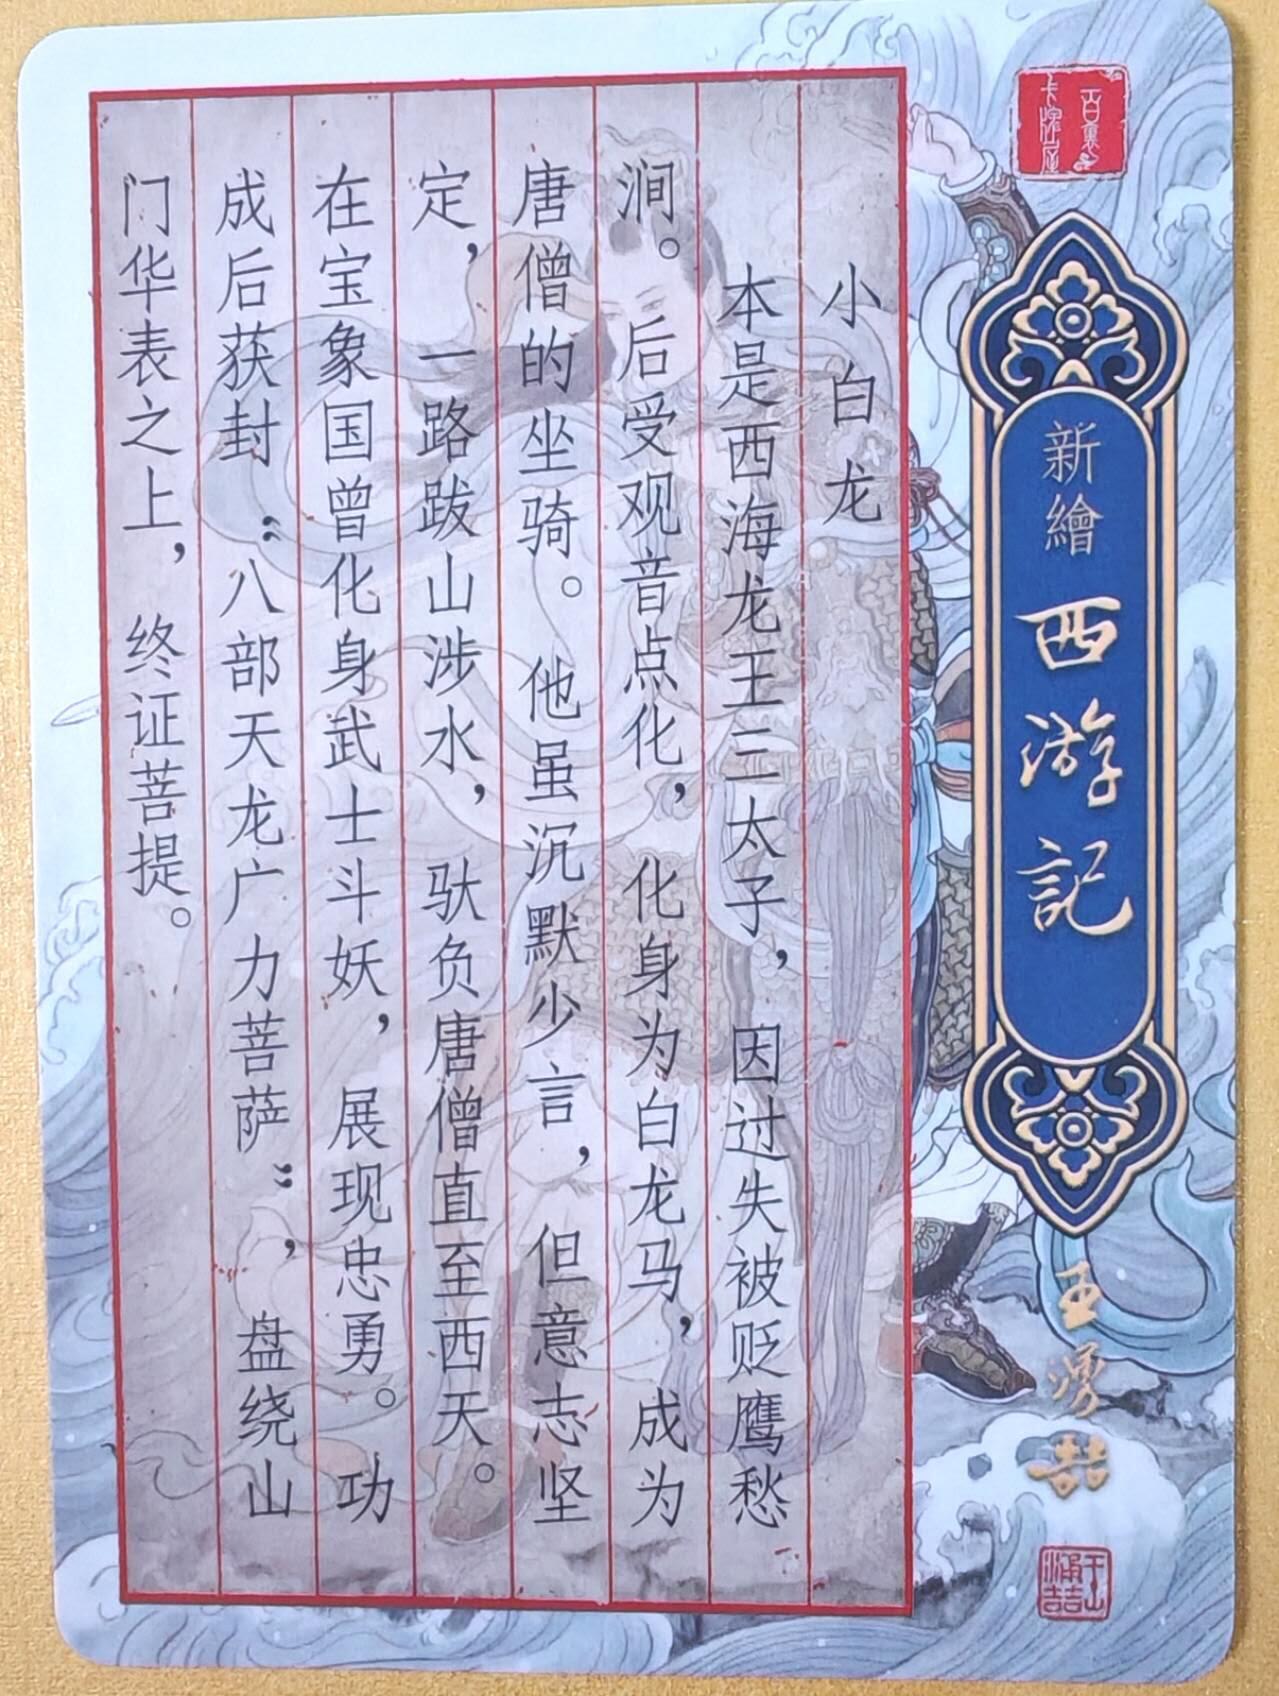 百裏
卡牌屋
新繪
西游記
王勇喆
小白龙
本是西海龙王三太子，因过失被贬鹰愁
涧。后受观音点化，化身为白龙马，成为
唐僧的坐骑。他虽沉默少言，但意志坚
定，一路跋山涉水，驮负唐僧直至西天。
在宝象国曾化身武士斗妖，展现忠勇。功
成后获封“八部天龙广力菩萨”，盘绕山
门华表之上，终证菩提。